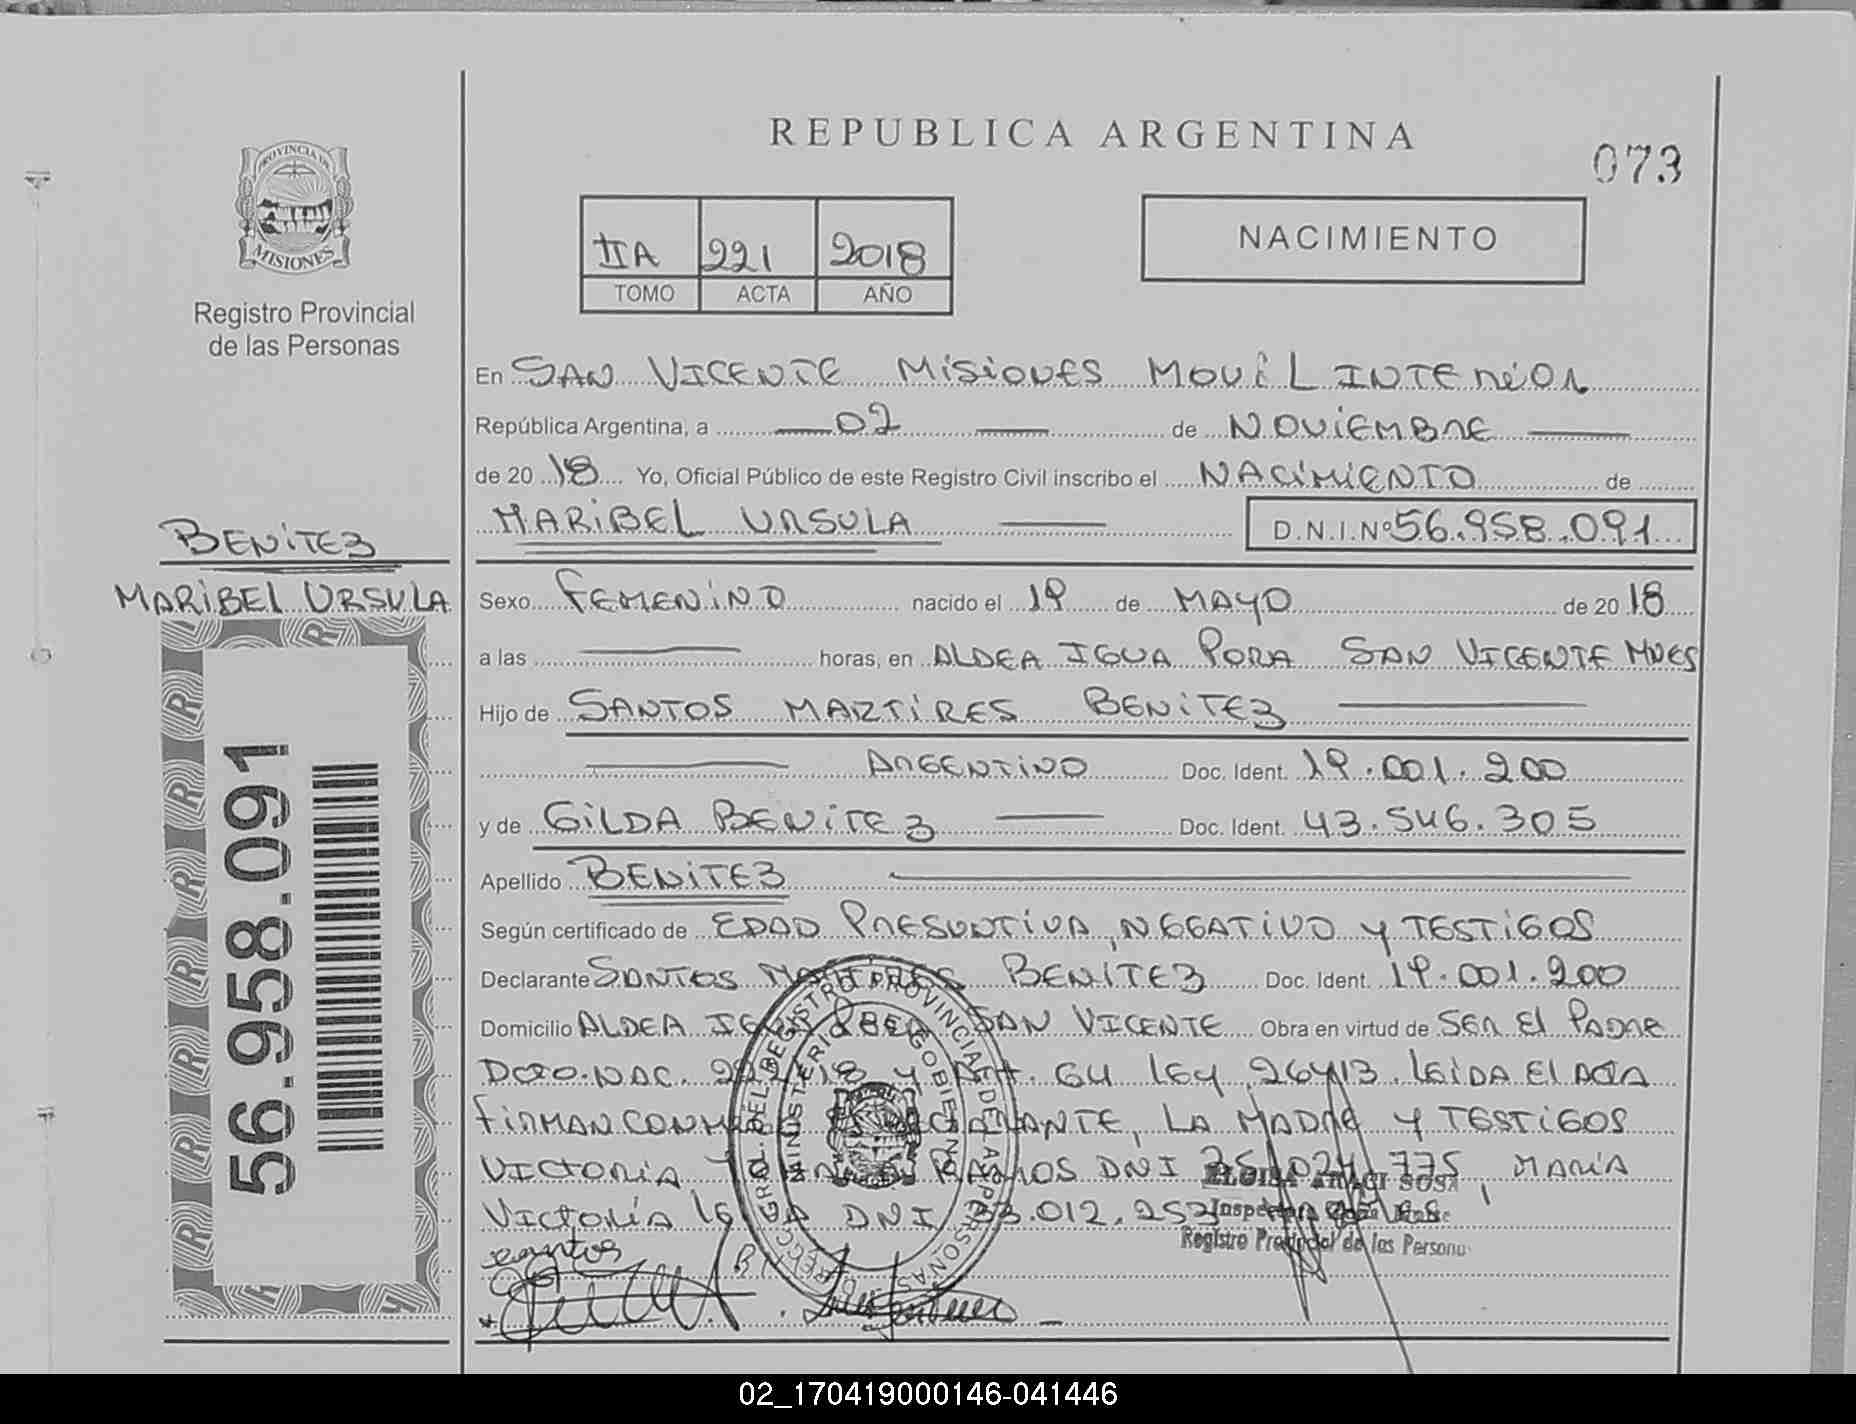 REPUBLICA ARGENTINA
073
PROVINCIA DE
MISIONES
Registro Provincial
de las Personas
IIA 221 2018
TOMO ACTA AÑO
NACIMIENTO
En SAN VICENTE MISIONES MOVIL INTERIOR
República Argentina, a 02 de NOVIEMBRE
de 20 18 Yo, Oficial Público de este Registro Civil inscribo el NACIMIENTO de
MARIBEL URSULA D.N.I.Nº 56.958.091
BENITEZ
MARIBEL URSULA
56.958.091
Sexo FEMENINO nacido el 19 de MAYO de 20 18
a las horas, en ALDEA IGUA PORA SAN VICENTE MNES
Hijo de SANTOS MARTIRES BENITEZ
ARGENTINO Doc. Ident. 19.001.200
y de GILDA BENITEZ Doc. Ident. 43.546.305
Apellido BENITEZ
Según certificado de EDAD PRESUNTIVA, NEGATIVO Y TESTIGOS
Declarante SANTOS MARTIRES BENITEZ Doc. Ident. 19.001.200
Domicilio ALDEA IGUA PORA SAN VICENTE Obra en virtud de SER El PADRE
NAC. Y ART. 64 LEY 26413. LEIDA El ACTA
FIRMAN CONMIGO El DECLARANTE, LA MADRE Y TESTIGOS
VICTORIA RAMOS DNI 775, MARIA
VICTORIA DNI 33.012.253
ELOISA ARACI SOSA
Inspectora
Registro Provincial de las Persona
santos
DIRECC. GRAL. DEL REGISTRO PROVINCIAL DE LAS PERSONAS
MINISTERIO DE GOBIERNO
02_170419000146-041446